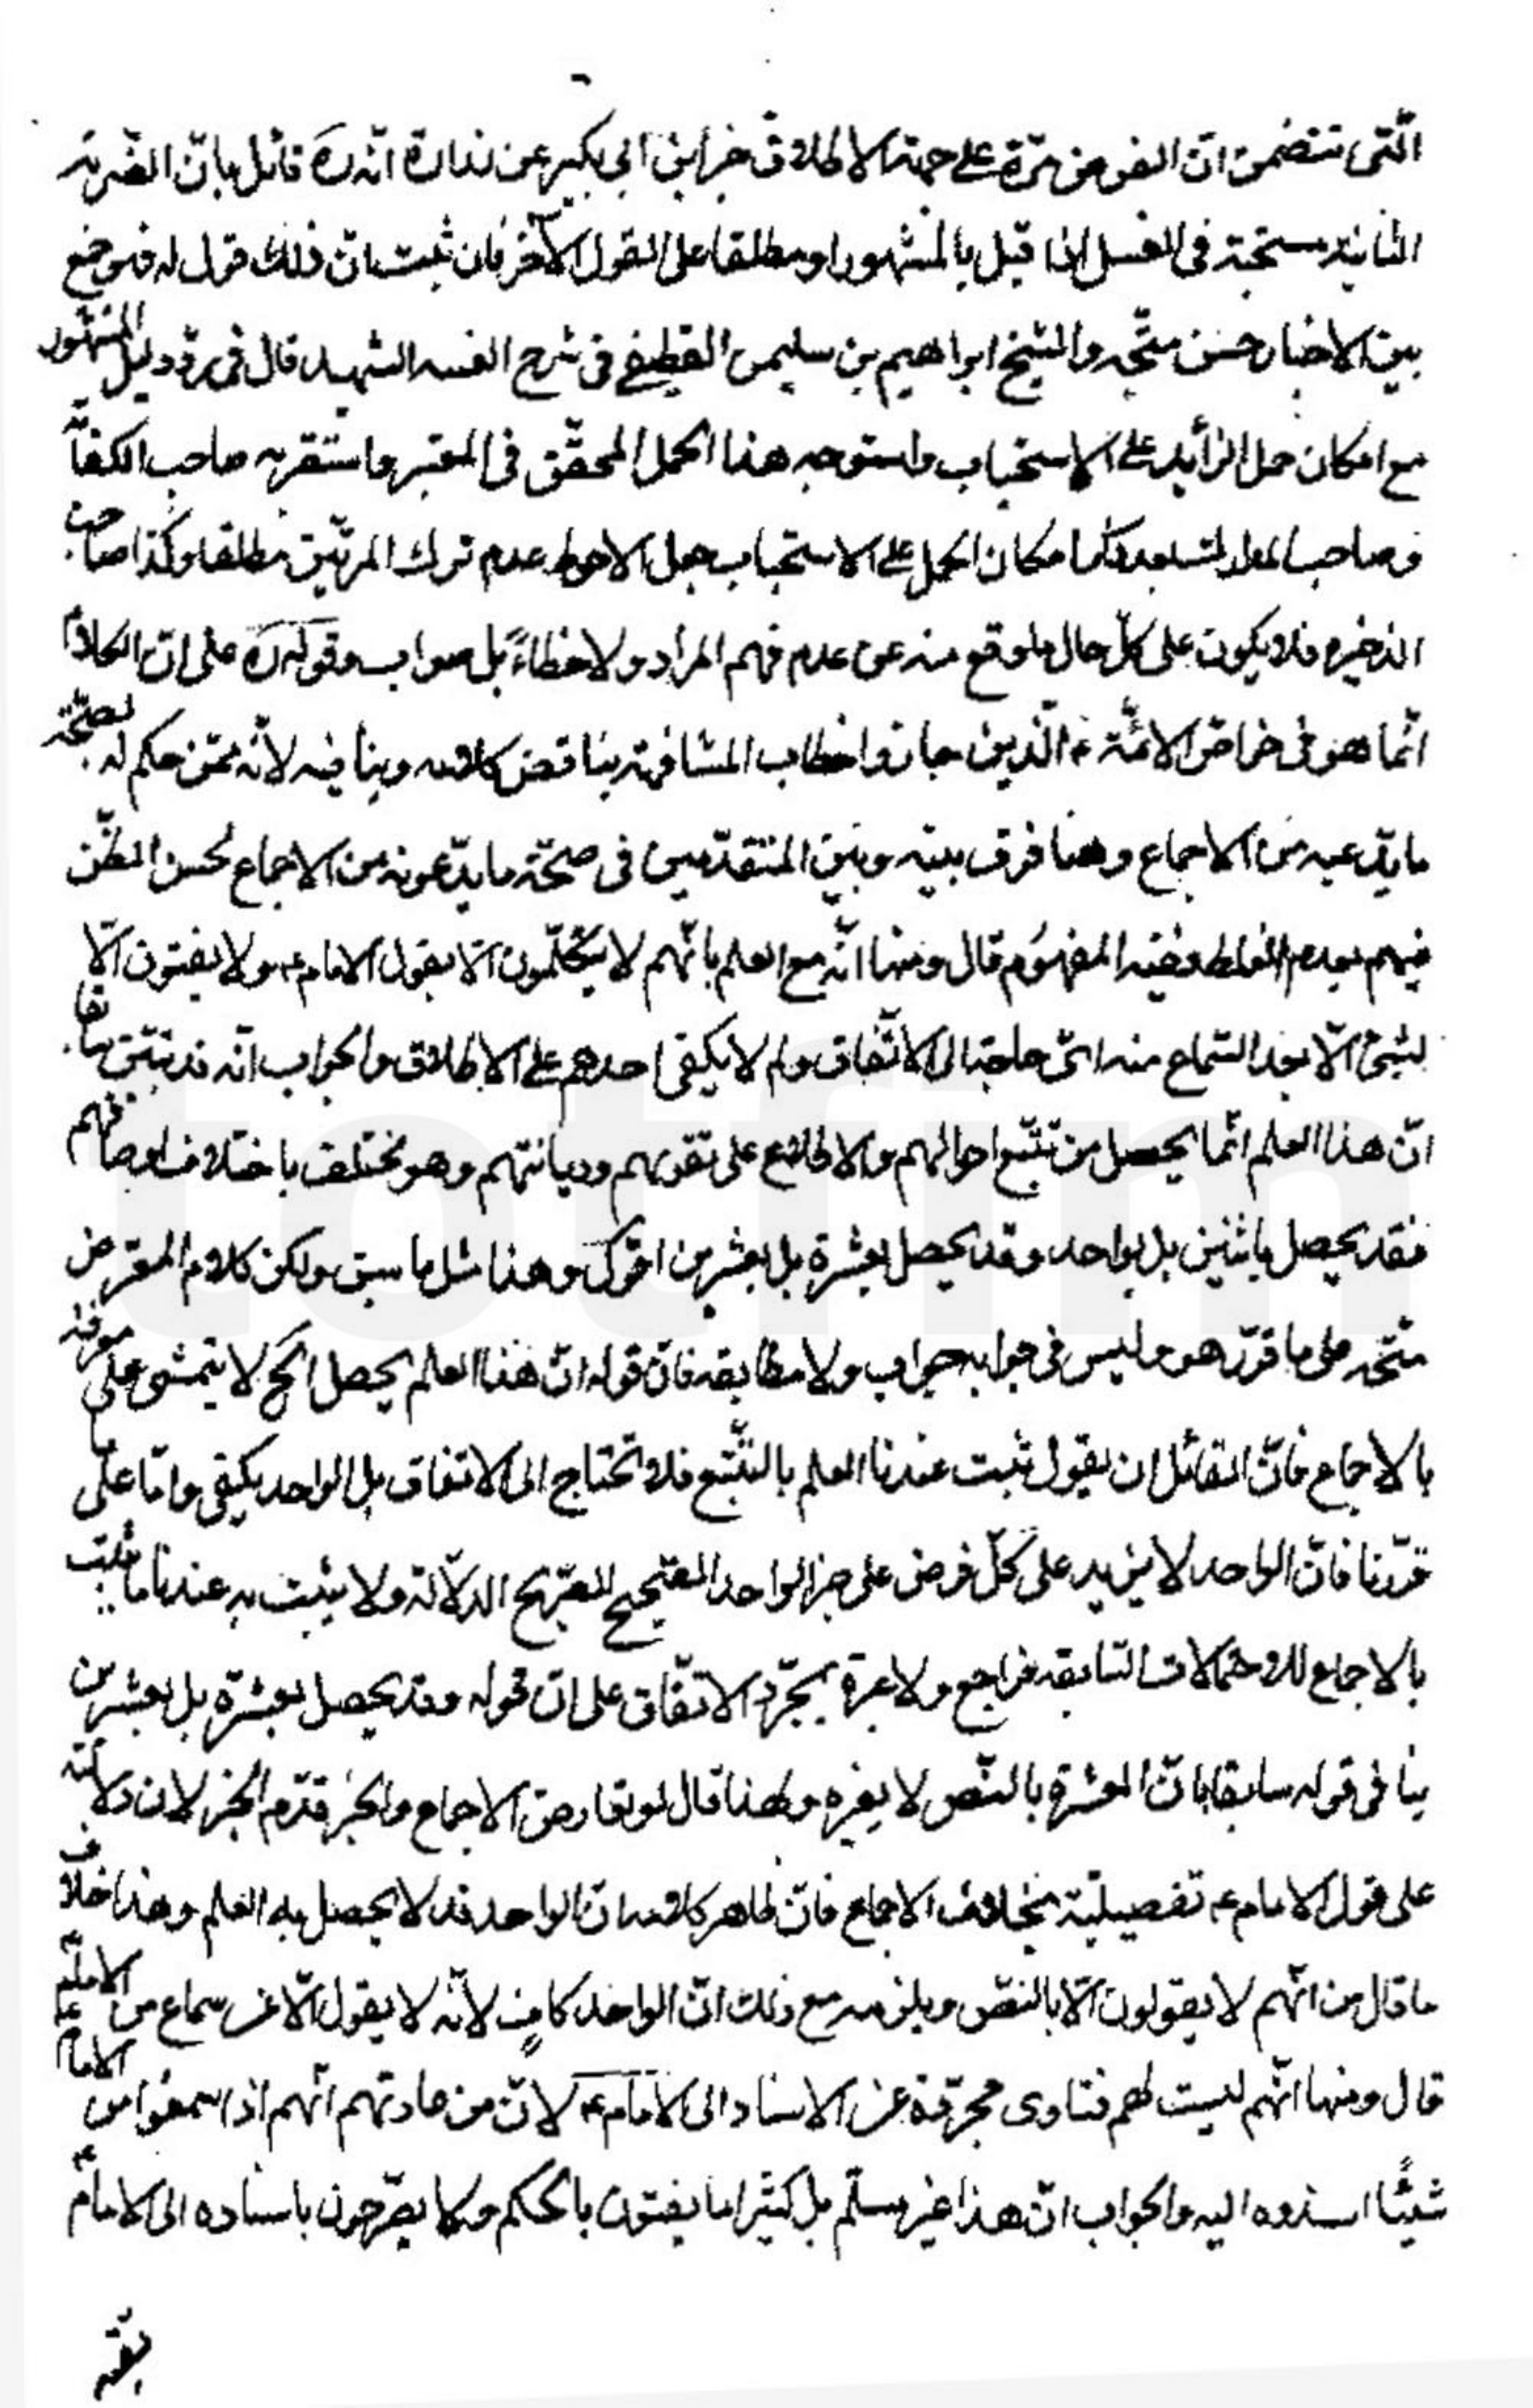 الّتی تتضمن انّ الغرض مرّة علی جهة الاطلاق خبر ابن ابی بکیر عن زرارة انّه ره قائل بانّ الضّربة
الثانیة مستحبّة فی الغسل اذا قیل بالمشهور او مطلقا علی القول الآخر فان ثبت بانّ ذلك قول له فهو جمع
بین الاخبار حسن متّجه والشیخ ابراهیم بن سلیمن القطیفی فی شرح الفیه الشهید قال فی ردّ دلیل المشهور
مع امکان حمل الزائد علی الاستحباب واستوجه هذا الحمل المحقّق فی المعتبر واستقربه صاحب الکفایة
وصاحب لما امکان الحمل علی الاستحباب جعل الاحوط عدم ترك المرتین مطلقا وکذا صاحب
الذخیره فلا یکون علی کلّ حال ما وقع منه عن عدم فهم المراد ولا خطاءً بل صواب وقوله ره علی انّ الکلام
انّما هو فی خواصّ الائمّة ع الّذین جازوا خطاب المشافهة یناقض کلامه وینافیه لانّه ممّن حکم له بصحّة
ما یدّعیه من الاجماع وهنا فرق بینه وبین المتقدّمین فی صحّة ما یدّعونه من الاجماع لحسن الظّن
فیهم بعدم الغلط وفیه المفهوم قال ومنها انّه مع العلم بانّهم لا یتکلّمون الّا بقول الامام ع ولا یفتون الّا
بشیئ الّا بعد السّماع منه ایّ حاجة الی الاتّفاق ولم لا یکفی احدهم علی الاطلاق والجواب انّه قد تبیّن سابقا
انّ هذا العلم انّما یحصل من تتبّع احوالهم والاطلاع علی تقویهم ودیانتهم وهو مختلف باختلاف اوصافهم
فقد یحصل باثنین بل بواحد وقد یحصل بعشرة بل بعشرین اقول وهذا مثل ما سبق ولکن کلام المعترض
متّجه علی ما قرّر هو ولیس فی جوابه جواب ولا مطابقه فانّ قوله انّ هذا العلم یحصل الخ لا یتمشی علی معرفته
بالاجماع فانّ القائل ان یقول ثبت عندنا العلم بالتّتبع فلا تحتاج الی الاتفاق بل الواحد یکفی وامّا علی ما
قرّرنا فانّ الواحد لا یزید علی کلّ فرض علی خبر الواحد الصّحیح الصّریح الدّلالة ولا یثبت به عندنا ما یثبت
بالاجماع للاحتمالات السّابقه فراجع ولا عبرة بمجرّد الاتّفاق علی انّ قوله وقد یحصل بعشرة بل بعشرین
ینافی قوله سابقا بانّ العشرة بالنّص لا یغیره ولهذا قال لو تعارض الاجماع والخبر قدّم الخبر لان دلالته
علی قول الامام ع تفصیلیّة بخلاف الاجماع فانّ ظاهر کلامه انّ الواحد قد لا یحصل به العلم وهذا خلاف
ما قال من انّهم لا یقولون الّا بالنصّ ویلزمه مع ذلك انّ الواحد کاف لانّه لا یقول الّا عن سماع من الامام ع
قال ومنها انّهم لیست لهم فتاوی مجرّدة عن الاسناد الی الامام ع لانّ من عادتهم انّهم اذا سمعوا من الامام ع
شیئًا اسندوه الیه والجواب انّ هذا غیر مسلّم بل کثیرا ما یفتون بالحکم ولا یصّرحون باسناده الی الامام ع